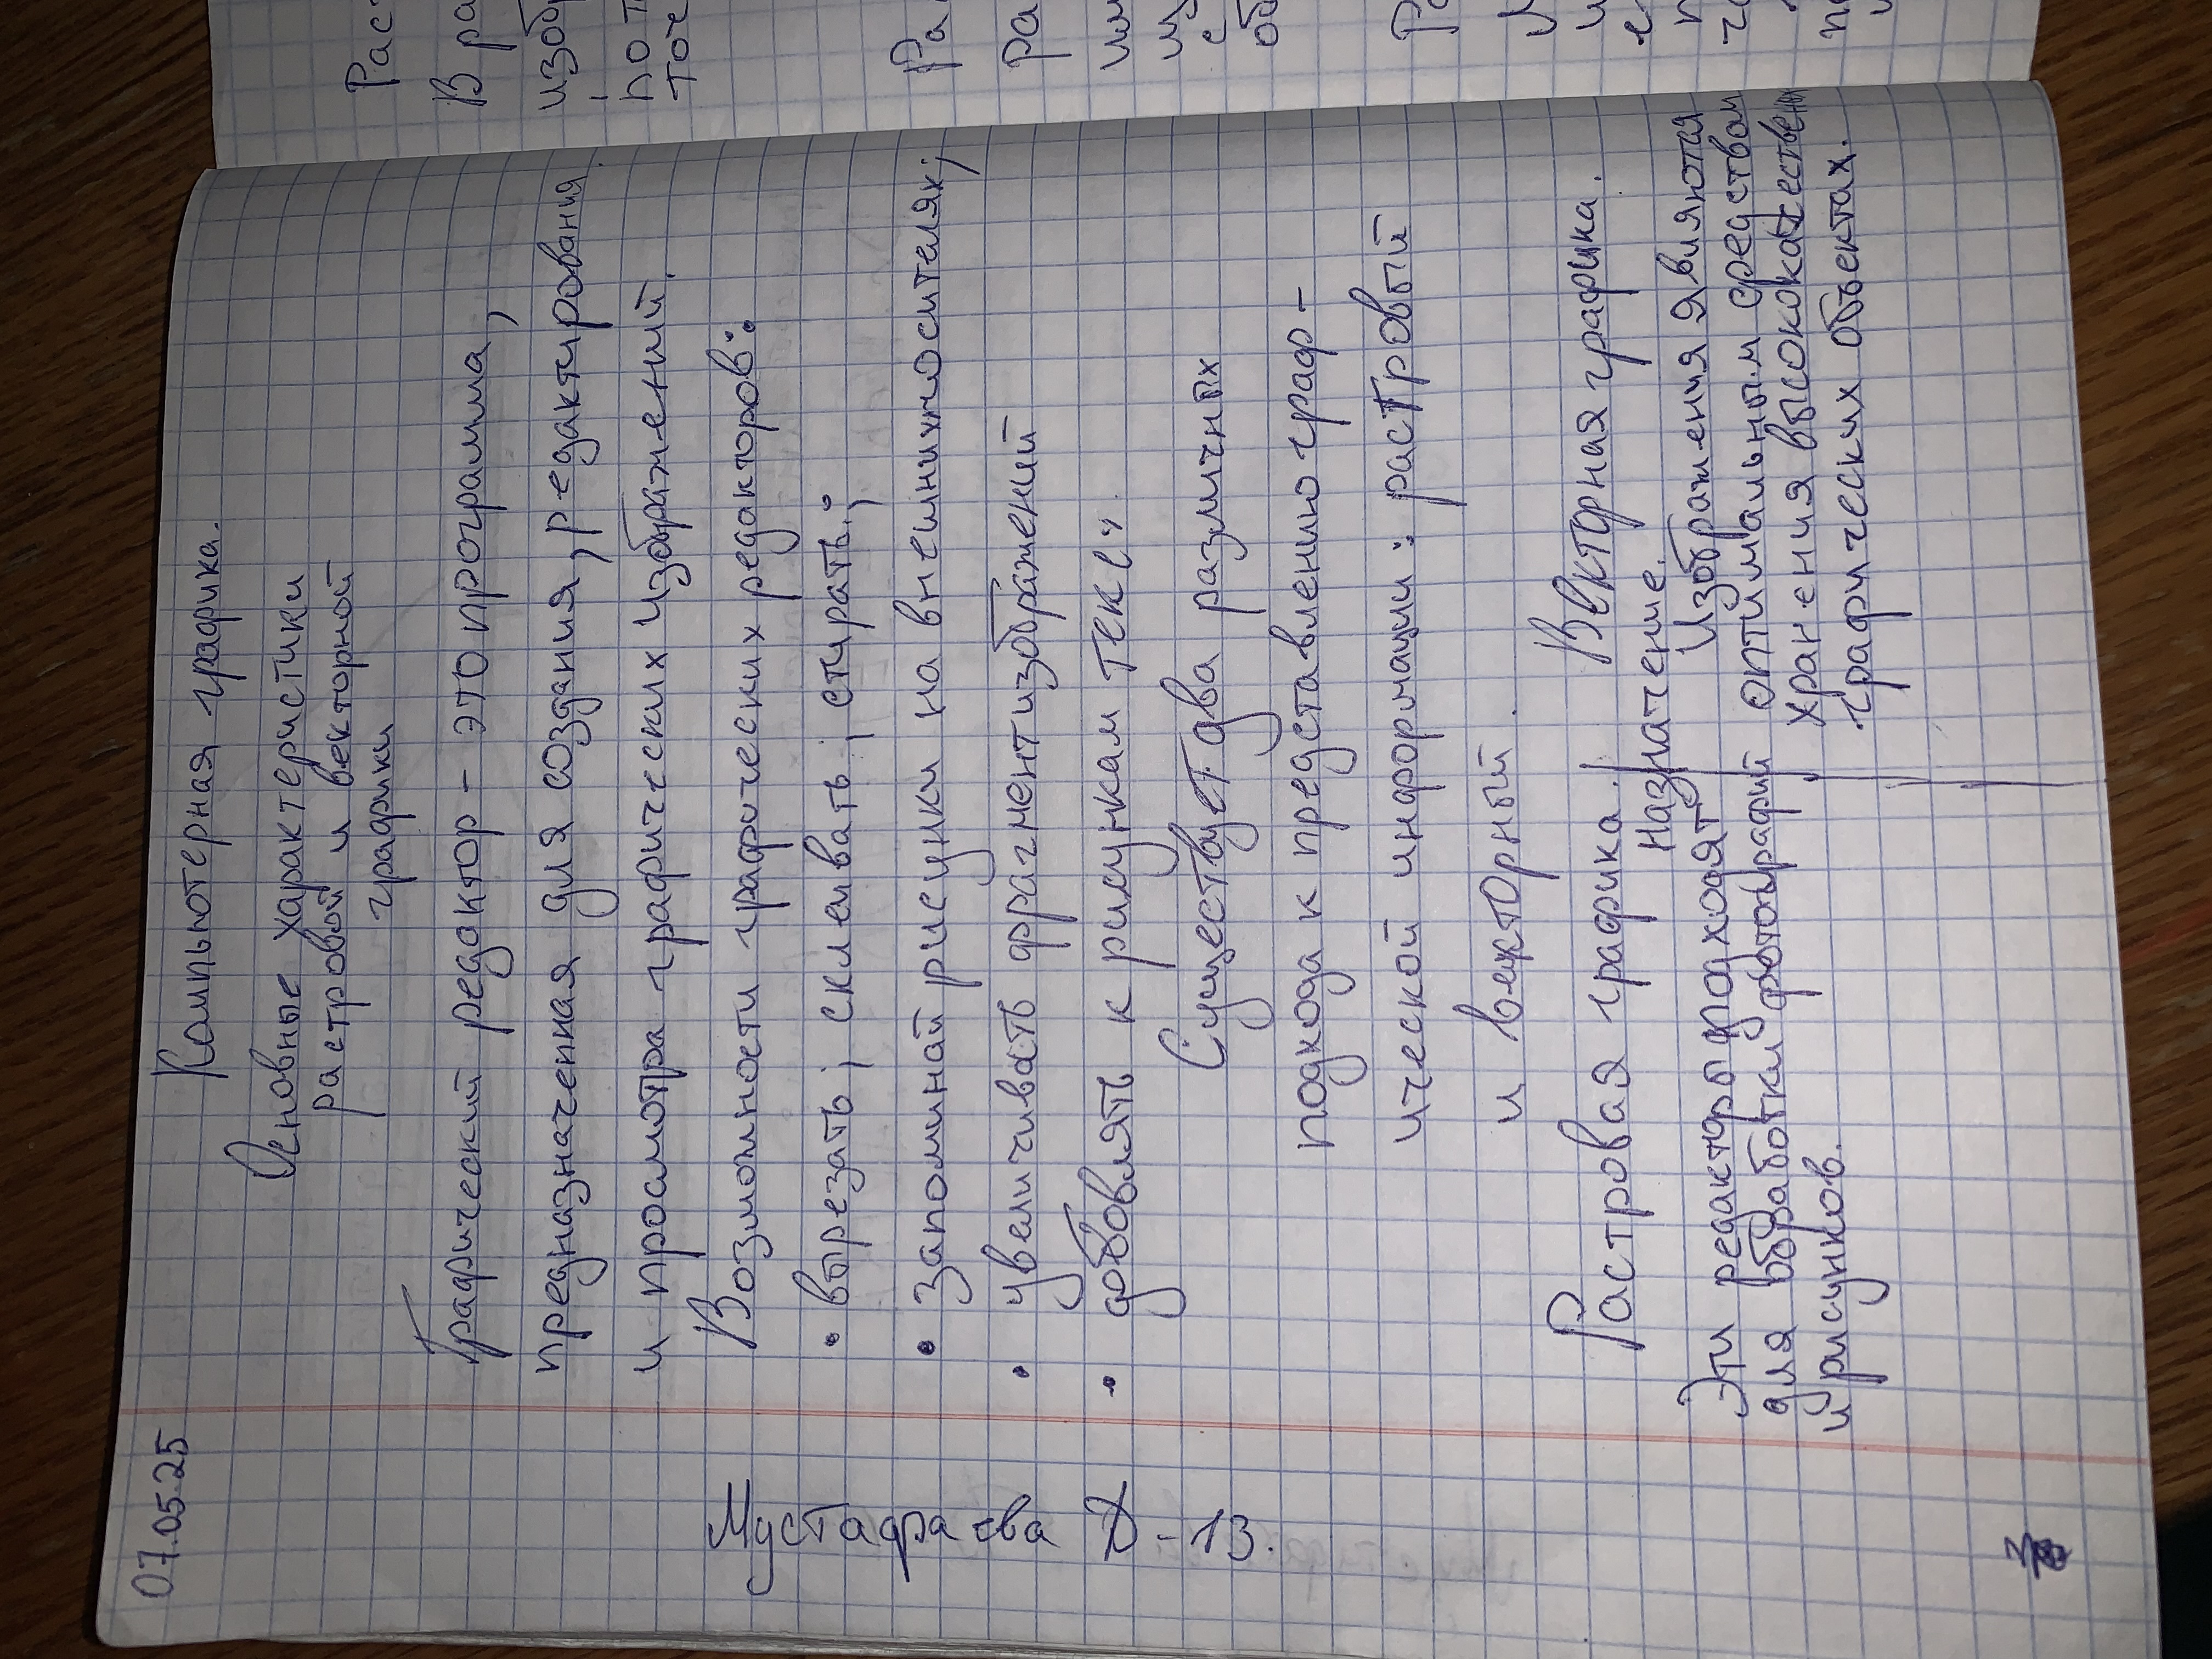 07.05.25
Компьютерная графика.
Основные характеристики
растровой и векторной
графики
Графический редактор - это программа,
предназначенная для создания, редактирования
и просмотра графических изображений.
Возможности графических редакторов:
• вырезать; склеивать; стирать;
• запоминай рисунки на внешних носителях;
• увеличивать фрагмент изображений
• добовлять к рисункам текст.
Существует два различных
подхода к представлению граф-
ической информации: растровый
и векторный.
Растровая графика. Векторная графика.
назначение.
Эти редакторы подходят
для обработки фотографий
и рисунков.
Изображения являются
оптимальным средством
хранения высококачествен
графических объектах.
Мустафаева
-13.
Рас
В ра
изоб
по т
точ
Ра
ра